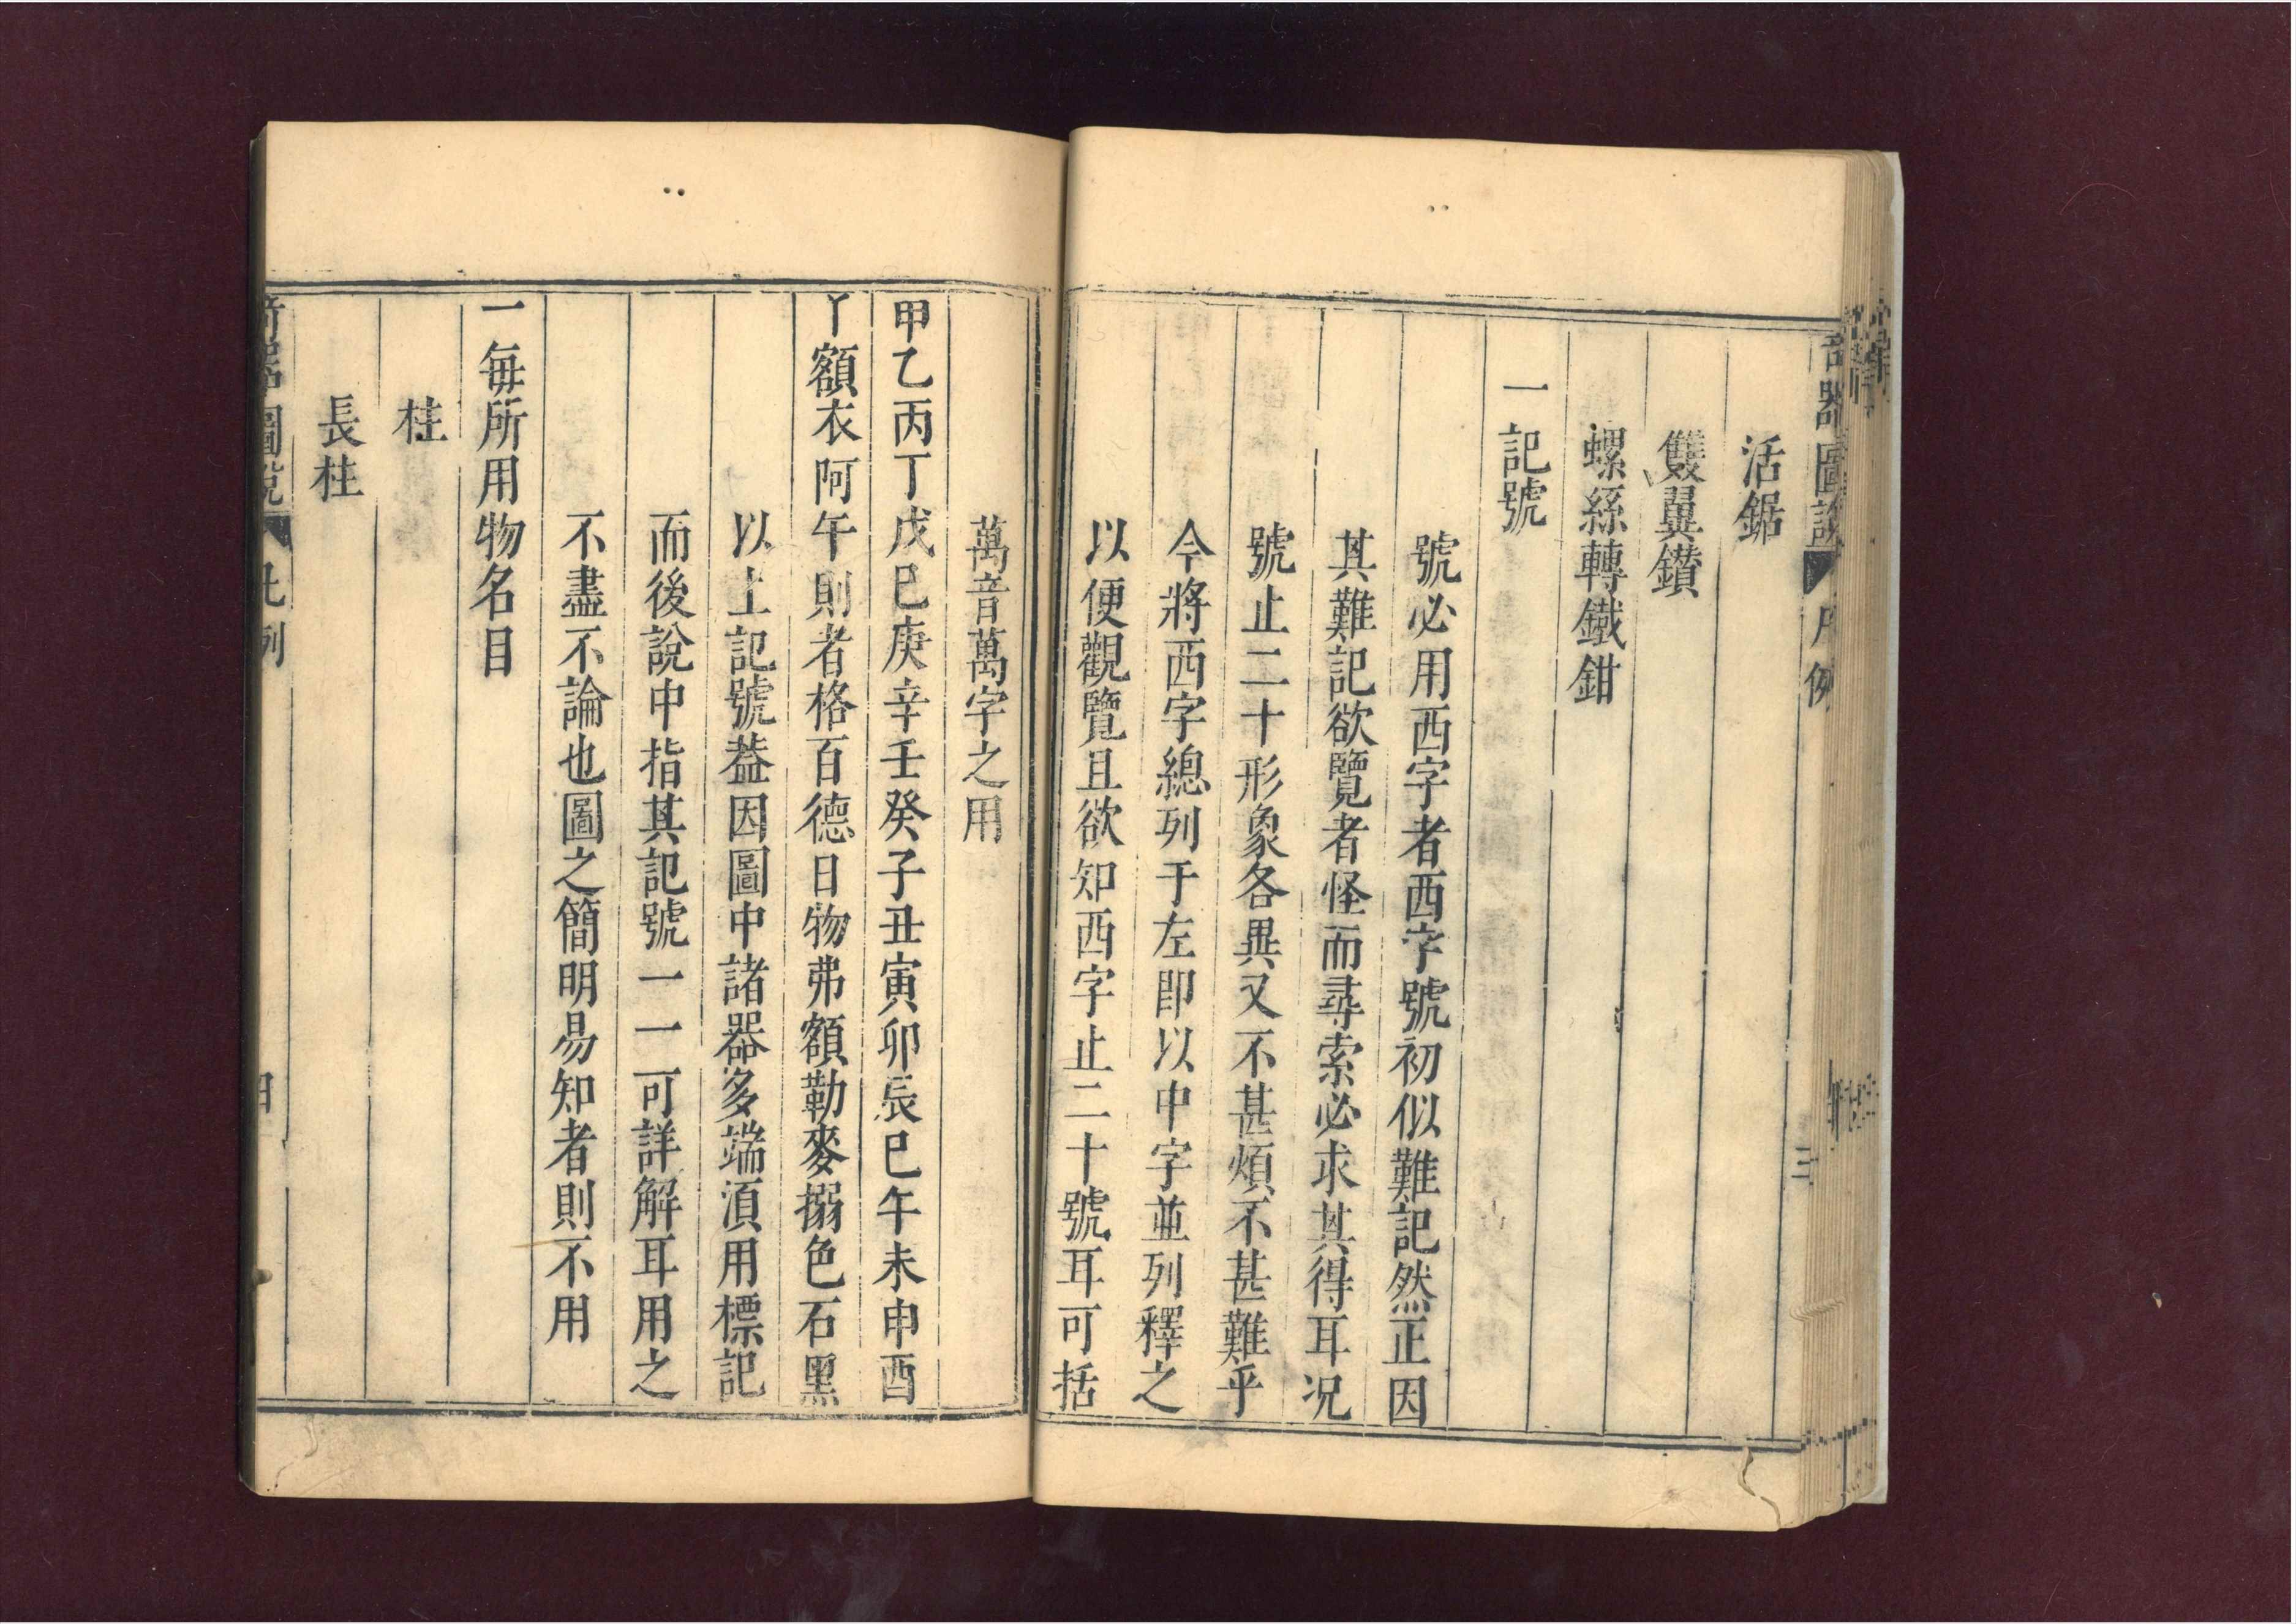 器圖說 凡例 三
活鋸
雙翼鑽
螺絲轉鐵鉗
一記號
號必用西字者西字號初似難記然正因
其難記欲覽者怪而尋索必求其得耳况
號止二十形象各異又不甚煩不甚難乎
今將西字總列于左即以中字並列釋之
以便觀覽且欲知西字止二十號耳可括
萬音萬字之用
甲乙丙丁戊巳庚辛壬癸子丑寅卯辰巳午未申酉
丫額衣阿午則者格百德日物弗額勒麥搦色石黑
以上記號葢因圖中諸器多端湏用標記
而後說中指其記號一一可詳解耳用之
不盡不論也圖之簡明易知者則不用
一每所用物名目
柱
長柱
圖說